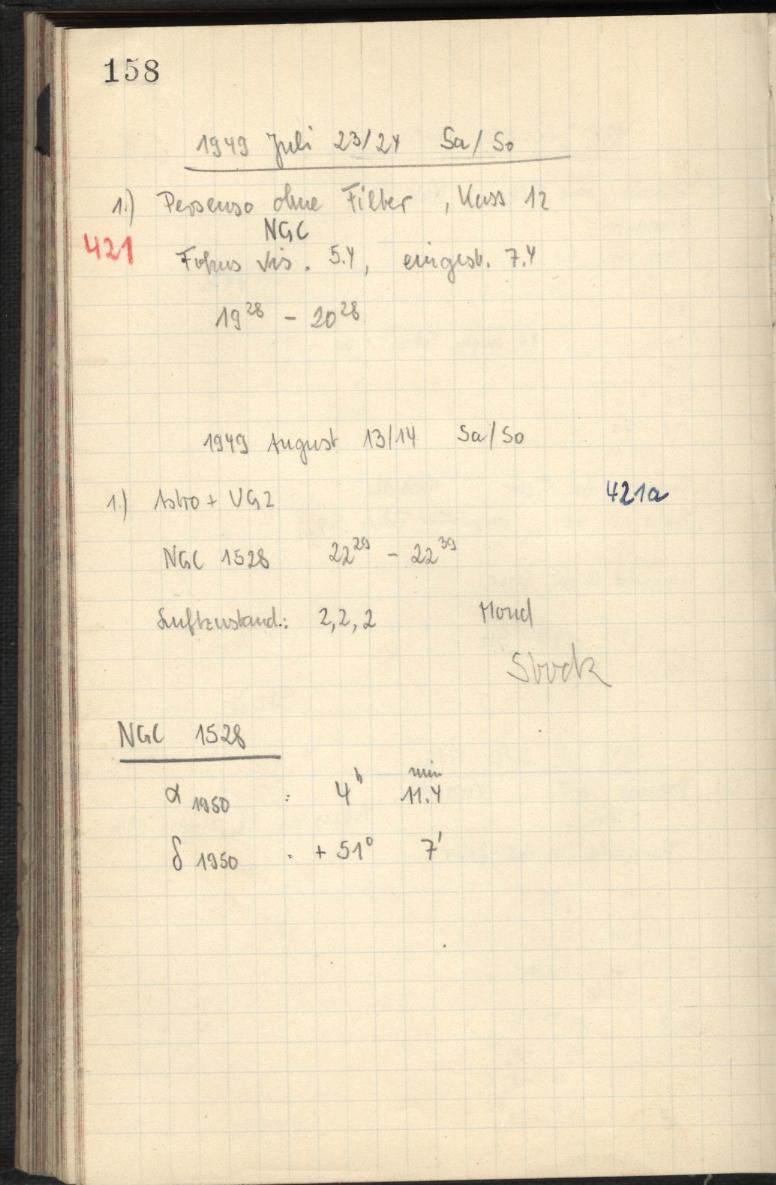 158
1949 Juli 23/24 Sa/So
1.) Perseuso ohne Filter, Kass 12
NGC
421 Fokus vis. 5.4, eingest. 7.4
19 28 – 20 28
1949 August 13/14 Sa/So
1.) Astro + VG2 421a
NGC 1528 22 29 – 22 39
Luftzustand.: 2,2,2 Mond
Stock
NGC 1528
α 1950 : 4h 11.4 min
δ 1950 : + 51° 7'